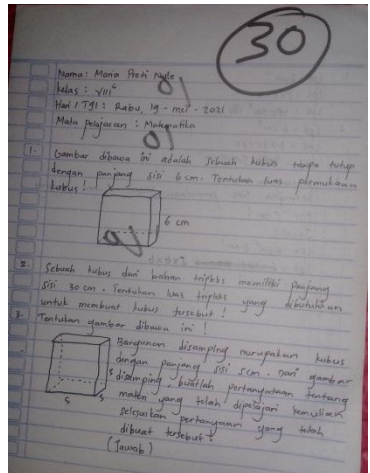 30
Nama: Maria Preti Nule
Kelas: VIII
Hari / Tgl: Rabu, 19 - mei - 2021
Mata pelajaran: Matematika
1. Gambar dibawa ini adalah sebuah kubus tanpa tutup
dengan panjang sisi 6 cm. Tentukan luas permukaan
kubus!
6 cm
2. Sebuah kubus dari bahan tripleks memiliki panjang
sisi 30 cm. Tentukan luas tripleks yang dibutuhkan
untuk membuat kubus tersebut!
3. Tentukan gambar dibawa ini!
Bangunan disamping merupakan kubus
dengan panjang sisi 5cm. Dari gambar
disamping, buatlah pertanyaan tentang
materi yang telah dipelajari kemudian
selesaikan pertanyaan yang telah
dibuat tersebut!
5
5
5
(Jawab)